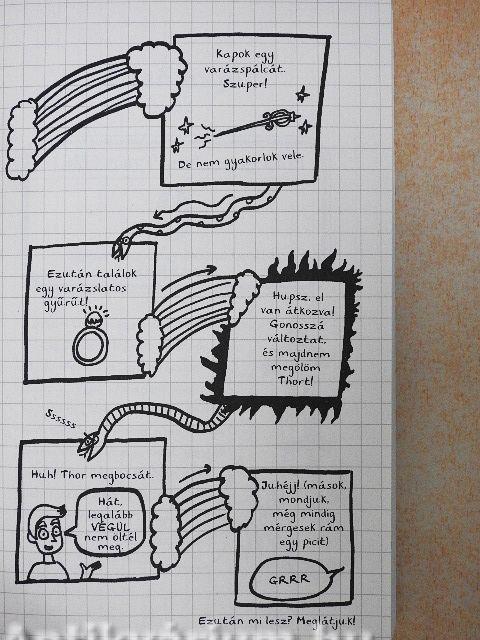 Kapok egy
varázspálcát.
Szuper!
De nem gyakorlok vele.
Ezután találok
egy varázslatos
gyűrűt!
Hupsz, el
van átkozva!
Gonosszá
változtat,
és majdnem
megölöm
Thort!
Ssssss
Huh! Thor megbocsát.
Hát,
legalább
VÉGÜL
nem öltél
meg.
Juhéjj! (mások,
mondjuk,
még mindig
mérgesek rám
egy picit)
GRRR
Ezután mi lesz? Meglátjuk!